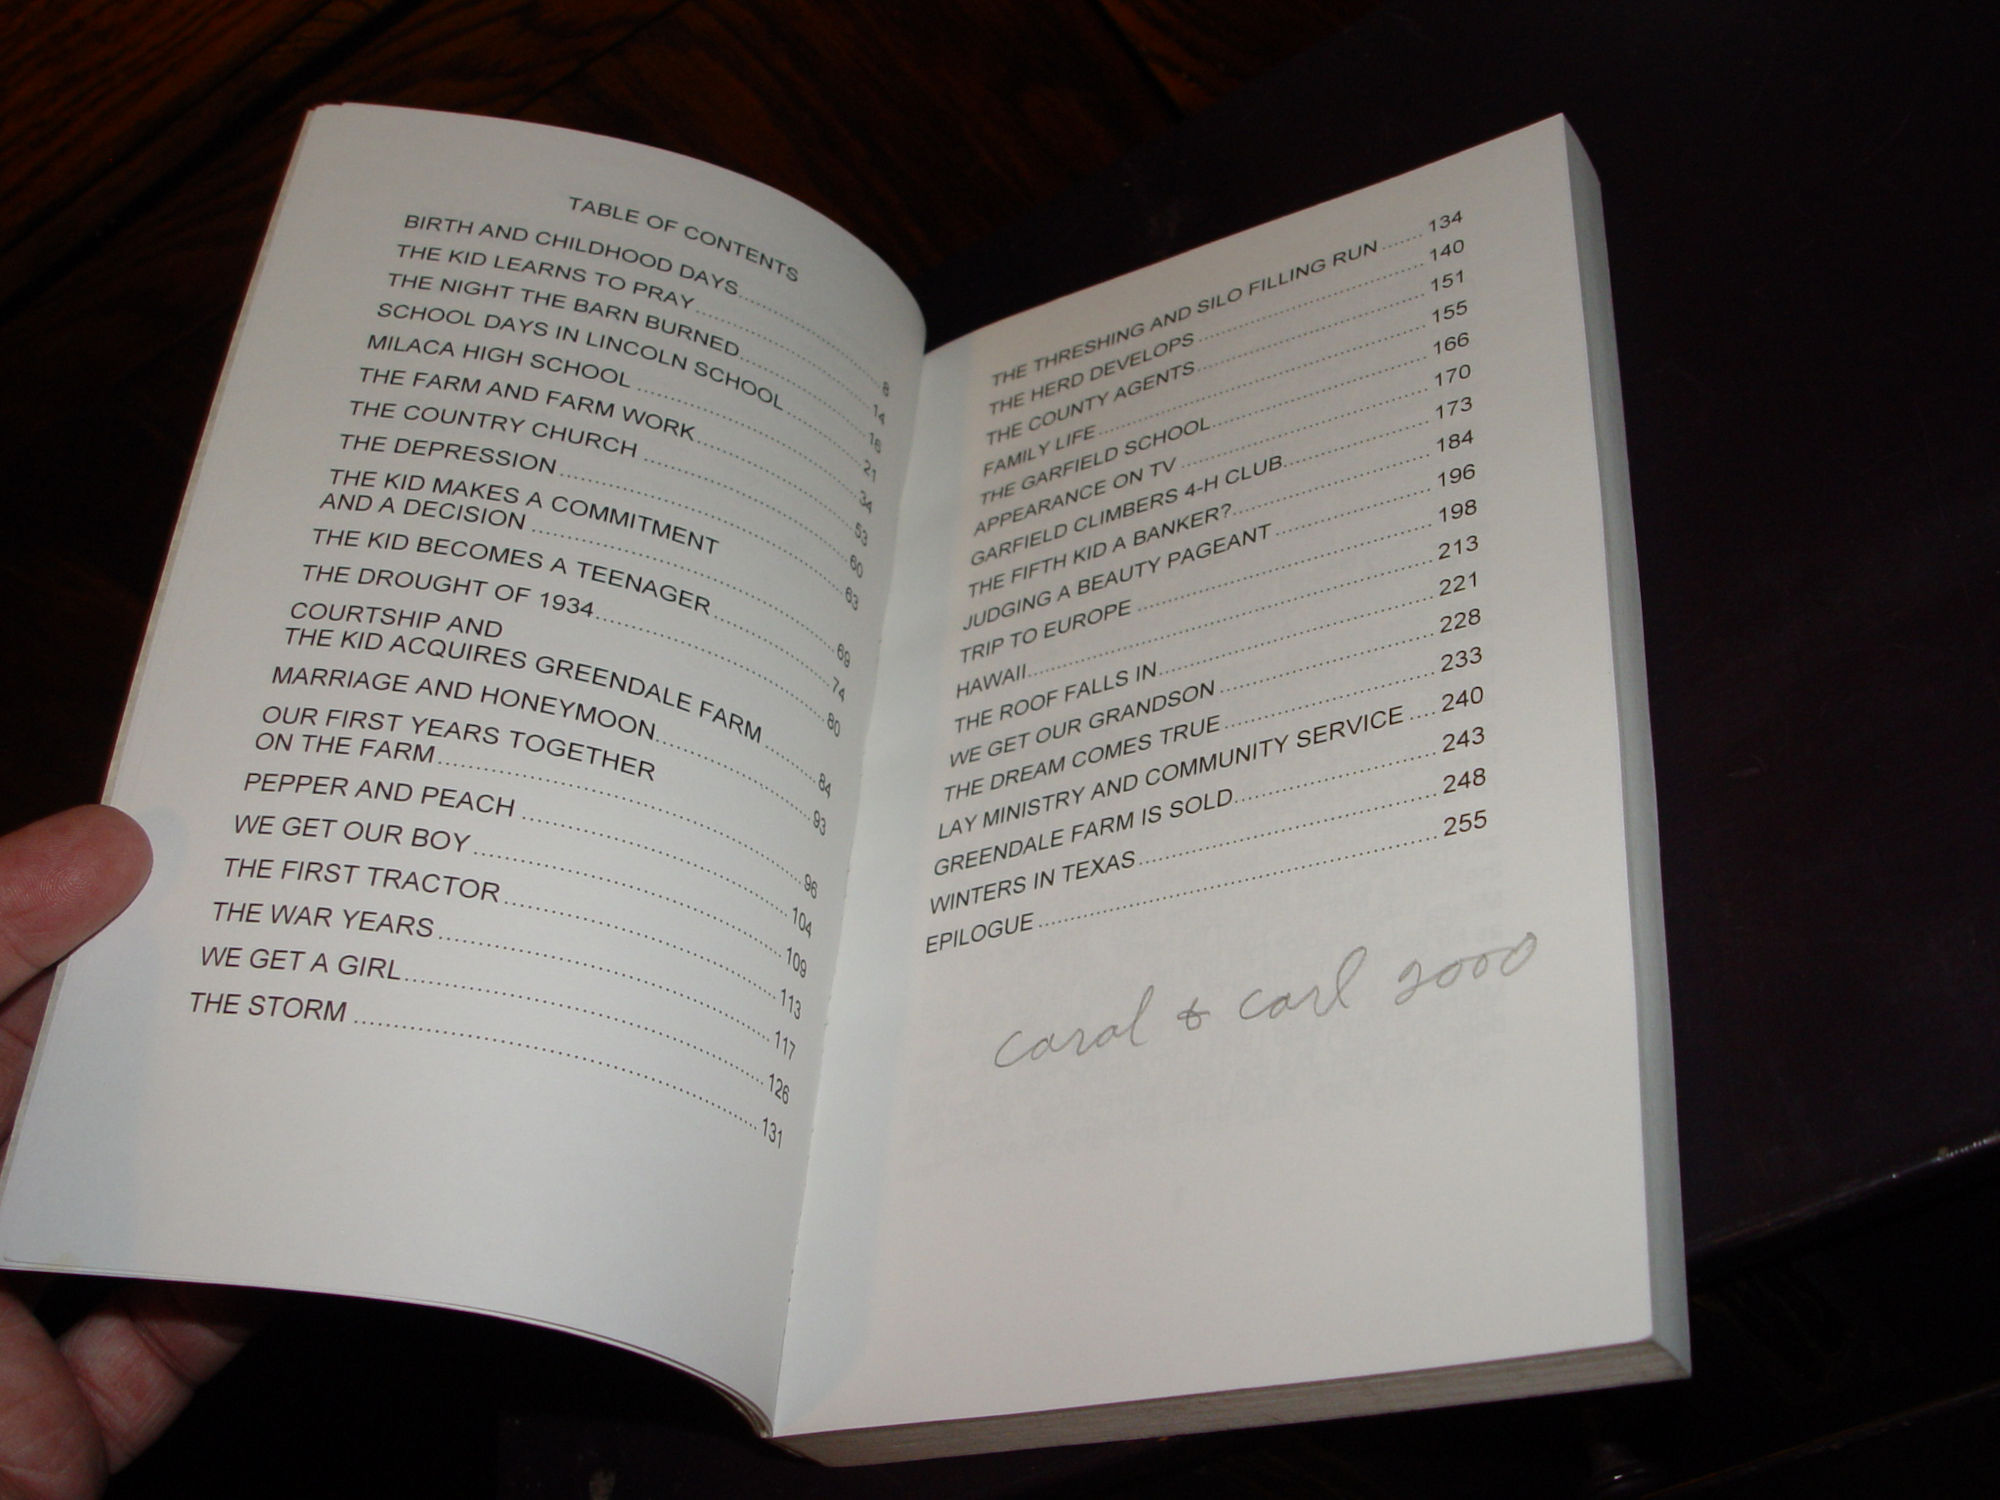 TABLE OF CONTENTS
BIRTH AND CHILDHOOD DAYS........................8
THE KID LEARNS TO PRAY........................14
THE NIGHT THE BARN BURNED........................16
SCHOOL DAYS IN LINCOLN SCHOOL........................21
MILACA HIGH SCHOOL ........................34
THE FARM AND FARM WORK........................53
THE COUNTRY CHURCH ........................60
THE DEPRESSION........................63
THE KID MAKES A COMMITMENT
AND A DECISION ........................69
THE KID BECOMES A TEENAGER........................74
THE DROUGHT OF 1934........................80
COURTSHIP AND
THE KID ACQUIRES GREENDALE FARM ........84
MARRIAGE AND HONEYMOON........................93
OUR FIRST YEARS TOGETHER
ON THE FARM........................96
PEPPER AND PEACH ........................104
WE GET OUR BOY ........................109
THE FIRST TRACTOR ........................113
THE WAR YEARS ........................117
WE GET A GIRL........................126
THE STORM ........................131
THE THRESHING AND SILO FILLING RUN ....... 134
THE HERD DEVELOPS ........................ 140
THE COUNTY AGENTS........................ 151
FAMILY LIFE........................ 155
THE GARFIELD SCHOOL........................ 166
APPEARANCE ON TV ........................ 170
GARFIELD CLIMBERS 4-H CLUB........................ 173
THE FIFTH KID A BANKER?........................ 184
JUDGING A BEAUTY PAGEANT ........................ 196
TRIP TO EUROPE ........................ 198
HAWAII........................ 213
THE ROOF FALLS IN........................ 221
WE GET OUR GRANDSON ........................ 228
THE DREAM COMES TRUE ........................ 233
LAY MINISTRY AND COMMUNITY SERVICE .... 240
GREENDALE FARM IS SOLD........................ 243
WINTERS IN TEXAS........................ 248
EPILOGUE ........................ 255
Carol & Carl 2000